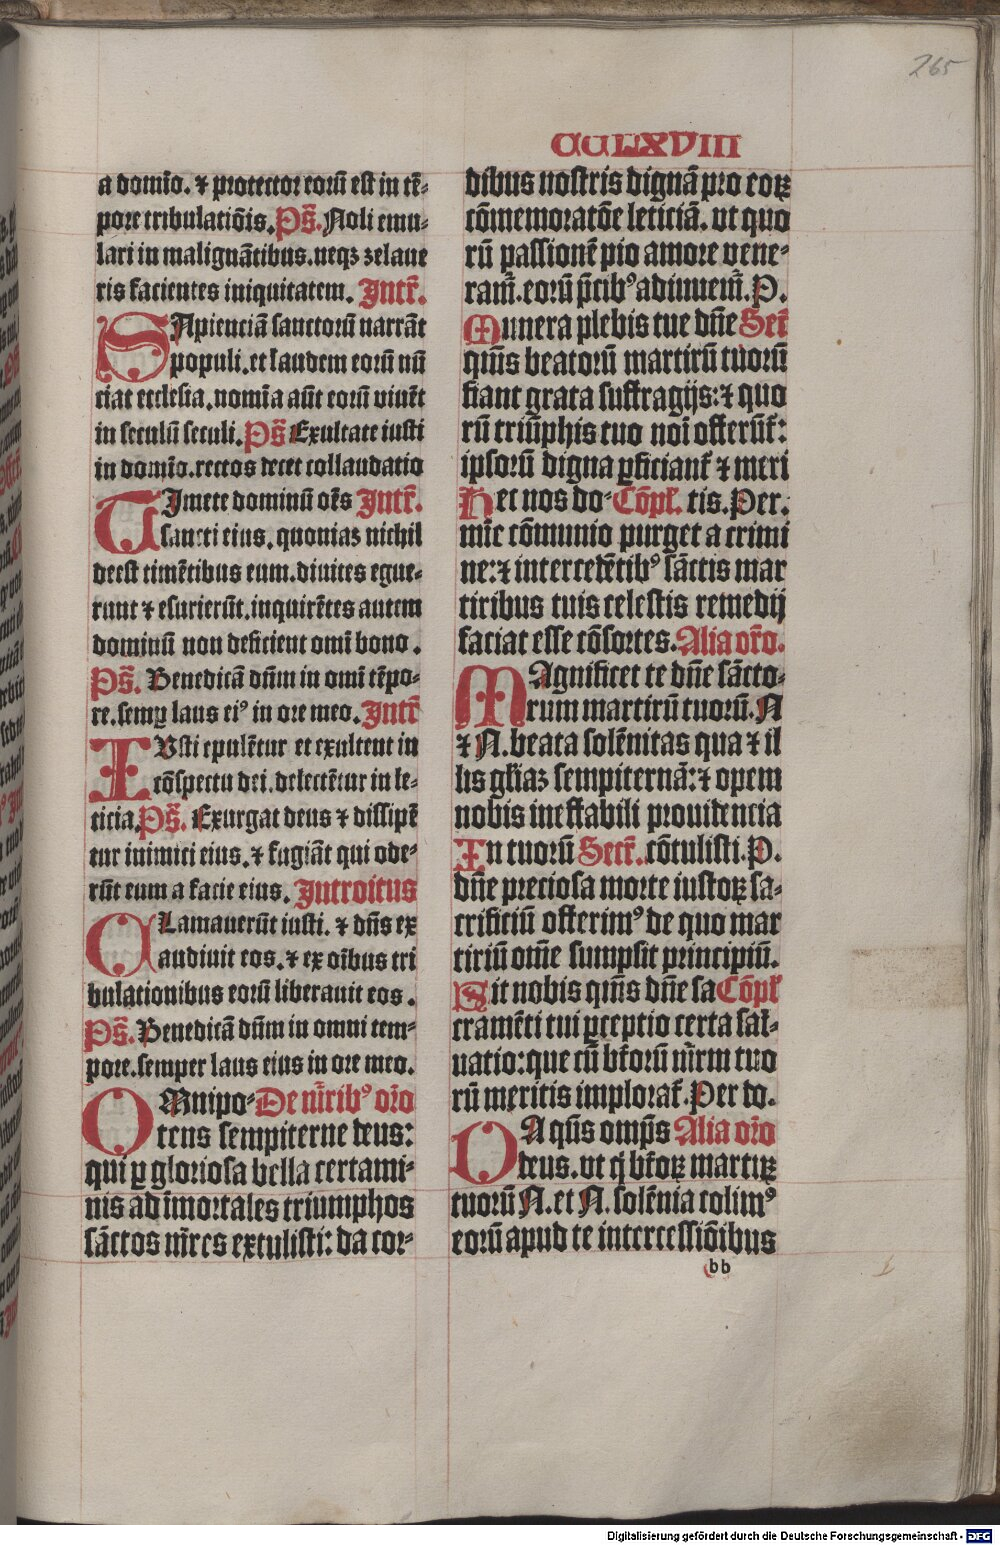 265
CCLXVIII
a domīo. ⁊ protector eorū est in tē-
pore tribulatiōis. Ps̄. Noli emu-
lari in malignātibus. neqꝫ zelaue
ris facientes iniquitatem. Intr̄.
SApienciā sanctorū narrāt
populi. et laudem eorū nū
ciat ecclesia. nomīa aūt eorū viuēt
in seculū seculi. Ps̄ Exultate iusti
in domīo. rectos decet collaudatio
TImete dominū oēs Intr̄.
sancti eius. quoniaꝫ nichil
deest timētibus eum. diuites egue-
runt ⁊ esurierūt. inquirētes autem
dominū non deficient omī bono.
Ps̄. Benedicā dn̄m in omi tēpo-
re. semꝑ laus eiꝰ in ore meo. Intr̄
IVsti epulētur et exultent in
cōspectu dei. delectētur in le-
ticia. Ps̄. Exurgat deus ⁊ dissipē
tur inimici eius. ⁊ fugiāt qui ode-
rūt eum a facie eius. Introitus
CLamauerūt iusti. ⁊ dn̄s ex
audiuit eos. ⁊ ex oībus tri
bulationibus eorū liberauit eos.
Ps̄. Benedicā dn̄m in omni tem-
pore. semper laus eius in ore meo.
OMnipo- De mr̄ribꝰ or̄o
tens sempiterne deus:
qui ꝑ gloriosa bella certami-
nis ad īmortales triumphos
sāctos mr̄es extulisti: da cor-
dibus nostris dignā pro eoꝝ
cōmemoratōe leticiā. vt quo
rū passionē pio amore vene-
ram̄. eorū p̄cibꝰ adiuuem̄. P.
Munera plebis tue dn̄e Secr̄
qūs beatorū martirū tuorū
fiant grata suffragijs: ⁊ quo
rū triūphis tuo noī offerūt̄:
ipsorū digna ꝑficiant̄ ⁊ meri
Hec nos do- Cōpl̄. tis. Per.
mīe cōmunio purget a crimi
ne: ⁊ intercedētibꝰ sāctis mar
tiribus tuis celestis remedij
faciat esse cōsortes. Alia or̄o.
MAgnificet te dn̄e sācto-
rum martirū tuorū. N
⁊ N. beata solēnitas qua ⁊ il
lis gl̄iaꝫ sempiternā: ⁊ opem
nobis ineffabili prouidencia
In tuorū Secr̄. cōtulisti. P.
dn̄e preciosa morte iustoꝝ sa-
crificiū offerimꝰ de quo mar
tiriū om̄e sumpsit principiū.
Sit nobis qūs dn̄e sa Cōpl̄
cramēti tui ꝑceptio certa sal-
uatio: que cū bt̄orū mr̄m tuo
rū meritis implorat̄. Per do.
DA qūs omps̄ Alia or̄o
deus. vt q̄ bt̄oꝝ martiꝝ
tuorū N. et N. solēnia colimꝰ
eorū apud te intercessiōibus
bb
Digitalisierung gefördert durch die Deutsche Forschungsgemeinschaft - DFG